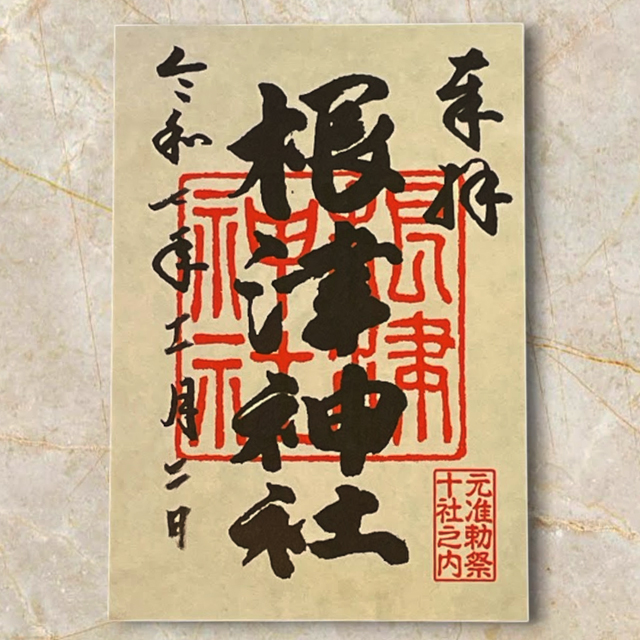 奉拝
根津神社
令和七年
月二日
根津
神社
元准勅祭
十社之内